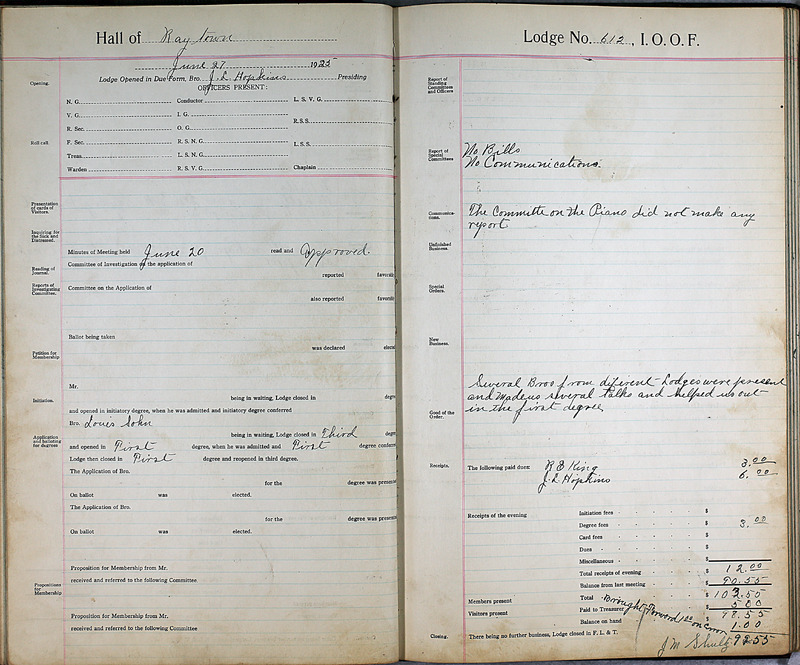 Hall of Raytown
June 27 1925
Opening.
Lodge Opened in Due Form, Bro. J. L. Hopkins Presiding
OFFICERS PRESENT:
N. G. Conductor L. S. V. G.
V. G. I. G.
R. S. S.
R. Sec. O. G.
Roll call.
F. Sec. R. S. N. G.
L. S. S.
Treas. L. S. N. G.
Warden R. S. V. G. Chaplain
Presentation of cards of Visitors.
Inquiring for the Sick and Distressed.
Minutes of Meeting held June 20 read and approved.
Reading of Journal.
Committee of Investigation on the application of
reported favorab
Reports of Investigating Committee.
Committee on the Application of
also reported favorab
Ballot being taken
was declared elected
Petition for Membership
Mr.
Initiation.
being in waiting, Lodge closed in degre
and opened in initiatory degree, when he was admitted and initiatory degree conferred
Bro. Loues Sohn
Application and balloting for degrees
being in waiting, Lodge closed in Third degre
and opened in First degree, when he was admitted and First degree conferre
Lodge then closed in First degree and reopened in third degree.
The Application of Bro.
for the degree was presen
On ballot was elected.
The Application of Bro.
for the degree was presen
On ballot was elected.
Proposition for Membership from Mr.
Propositions for Membership
received and referred to the following Committee.
Proposition for Membership from Mr.
received and referred to the following Committee
Lodge No. 612, I. O. O. F.
Report of Standing Committees and Officers
Report of Special Committees
No Bills
No Communications.
Communications.
The Committe on the Piano did not make any
report
Unfinished Business.
Special Orders.
New Business.
Several Bros from diferent Lodges were present
and made us several talks and helped us out
in the first degree
Good of the Order.
Receipts.
The following paid dues: R E King 3.00
J. L Hopkins 6.00
Receipts of the evening
Initiation fees $
Degree fees $ 3.00
Card fees $
Dues $
Miscellaneous $
Total receipts of evening $ 12.00
Balance from last meeting $ 90.55
Members present
Total $ 102.50
Paid to Treasurer $ 5.00
Visitors present
Brought forward 1.00
98.55
Balance on hand 1.00
Closing.
There being no further business, Lodge closed in F. L. & T.
J M Shultz 9255